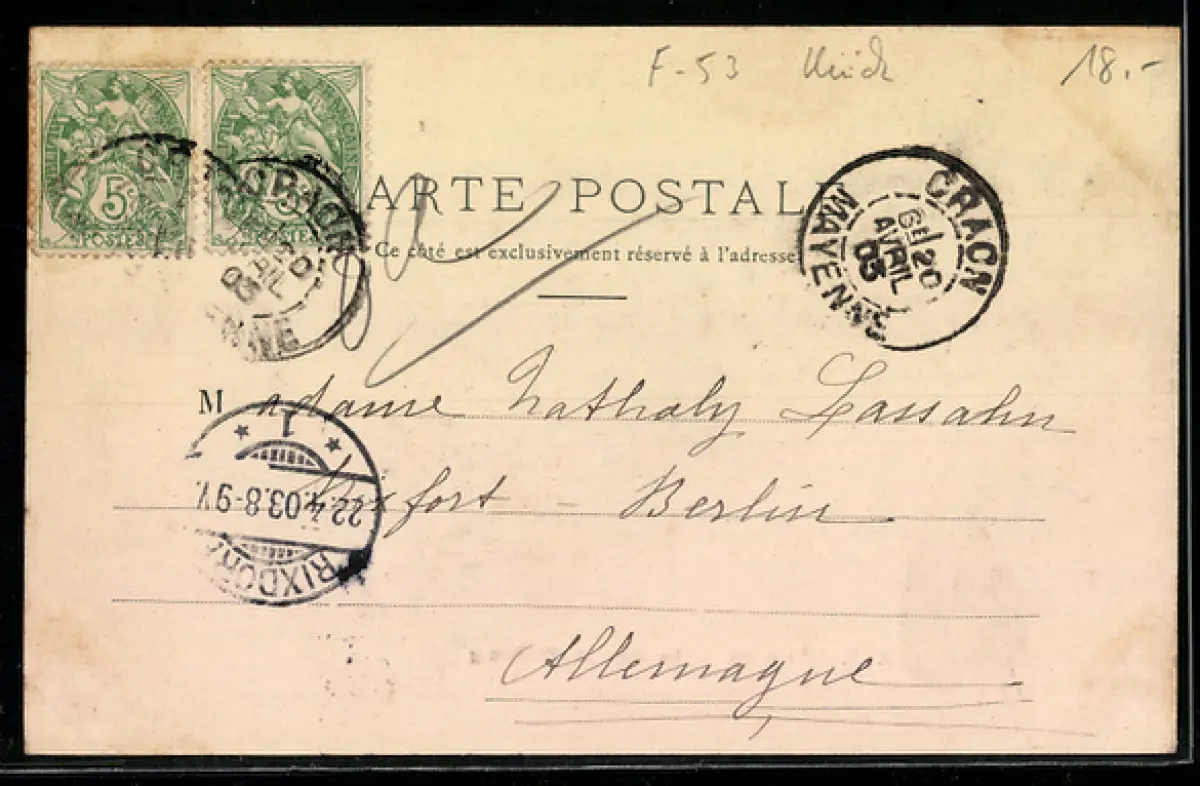 F-53 18.-
5c 5c
POSTES POSTES
CARTE POSTALE
Ce côté est exclusivement réservé à l'adresse
CRAON
6E/20
AVRIL
03
MAYENNE
CRAON
20
AVRIL
03
MAYENNE
Madame Nathaly Lassahn
Rixfort - Berlin
1
22.4.03.8-9V.
RIXDORF
Allemagne